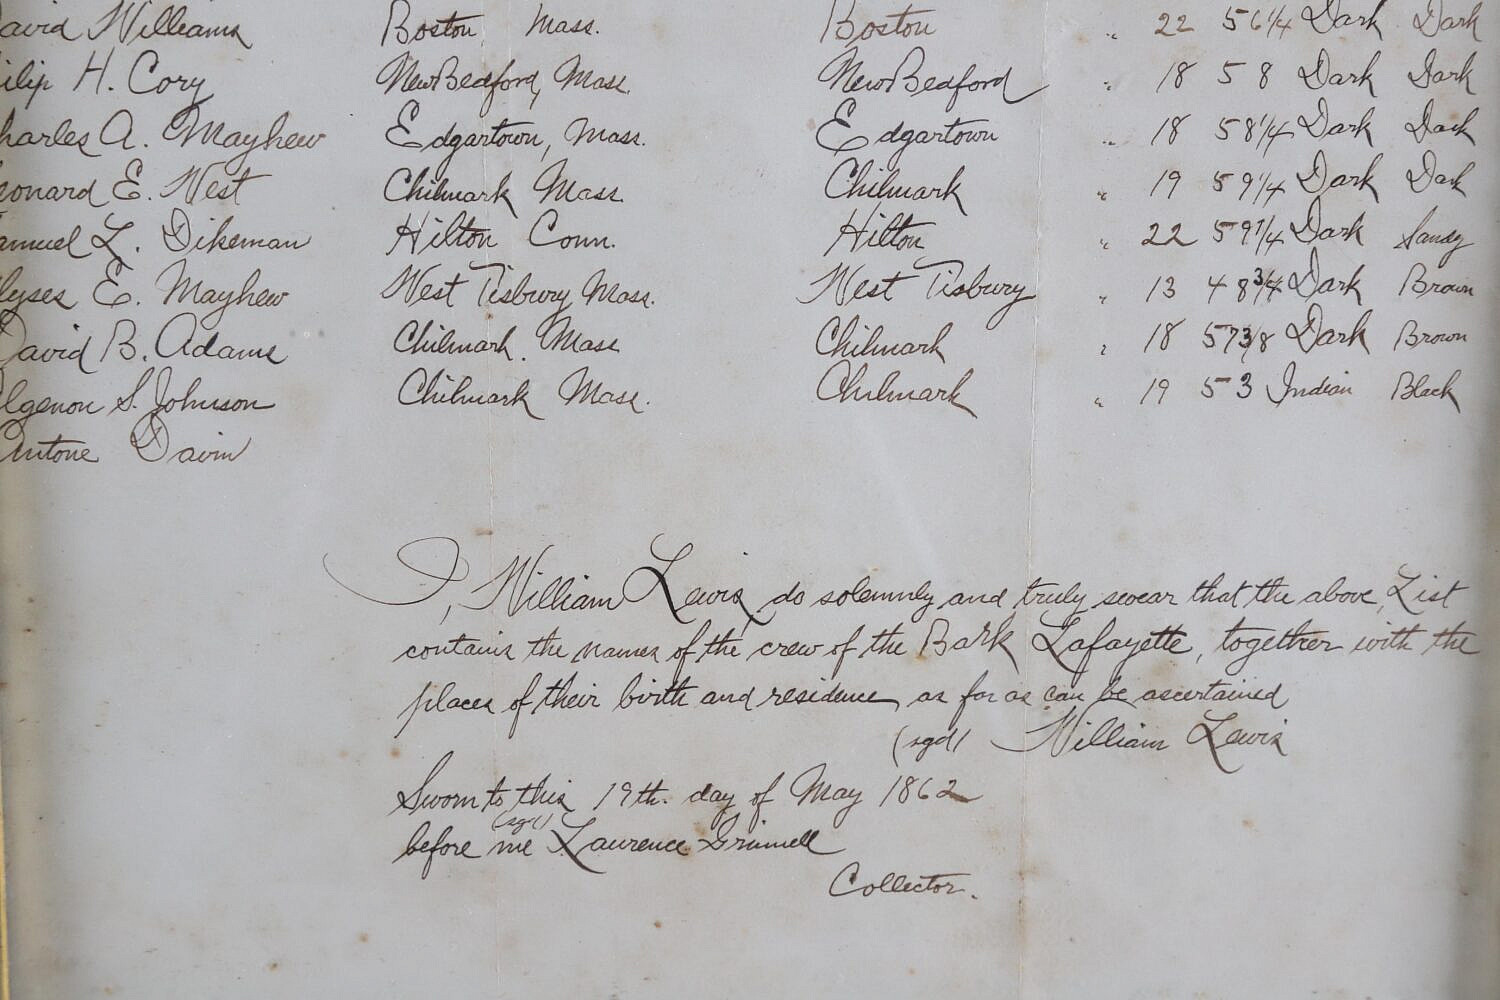 avid Williams Boston, Mass. Boston " 22 5 6 1/4 Dark Dark
ilip H. Cory New Bedford, Mass. New Bedford " 18 5 8 Dark Dark
harles A. Mayhew Edgartown, Mass. Edgartown " 18 5 8 1/4 Dark Dark
eonard E. West Chilmark Mass. Chilmark " 19 5 9 1/4 Dark Dark
amuel L. Dikeman Hilton Conn. Hilton " 22 5 9 1/4 Dark Sandy
lyses E. Mayhew West Tisbury Mass. West Tisbury " 13 4 8 3/4 Dark Brown
David B. Adams Chilmark. Mass Chilmark " 18 5 7 3/8 Dark Brown
lgenon S. Johnson Chilmark Mass. Chilmark " 19 5 3 Indian Black
Antone Davin
I, William Lewis, do solemnly and truly swear that the above List
contains the names of the crew of the Bark Lafayette, together with the
places of their birth and residence, as far as can be ascertained
(sgd) William Lewis
Sworn to this 19th. day of May 1862
(sgd)
before me Laurence Grinnell
Collector.